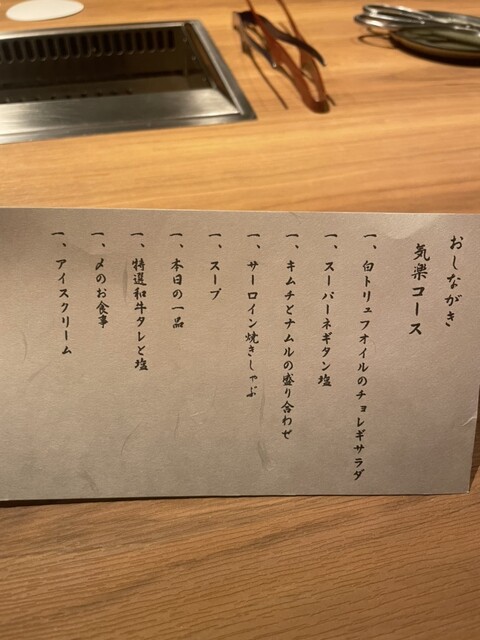 おしながき
気楽コース
一、白トリュフオイルのチョレギサラダ
一、スーパーネギタン塩
一、キムチとナムルの盛り合わせ
一、サーロイン焼きしゃぶ
一、スープ
一、本日の一品
一、特選和牛タレと塩
一、〆のお食事
一、アイスクリーム